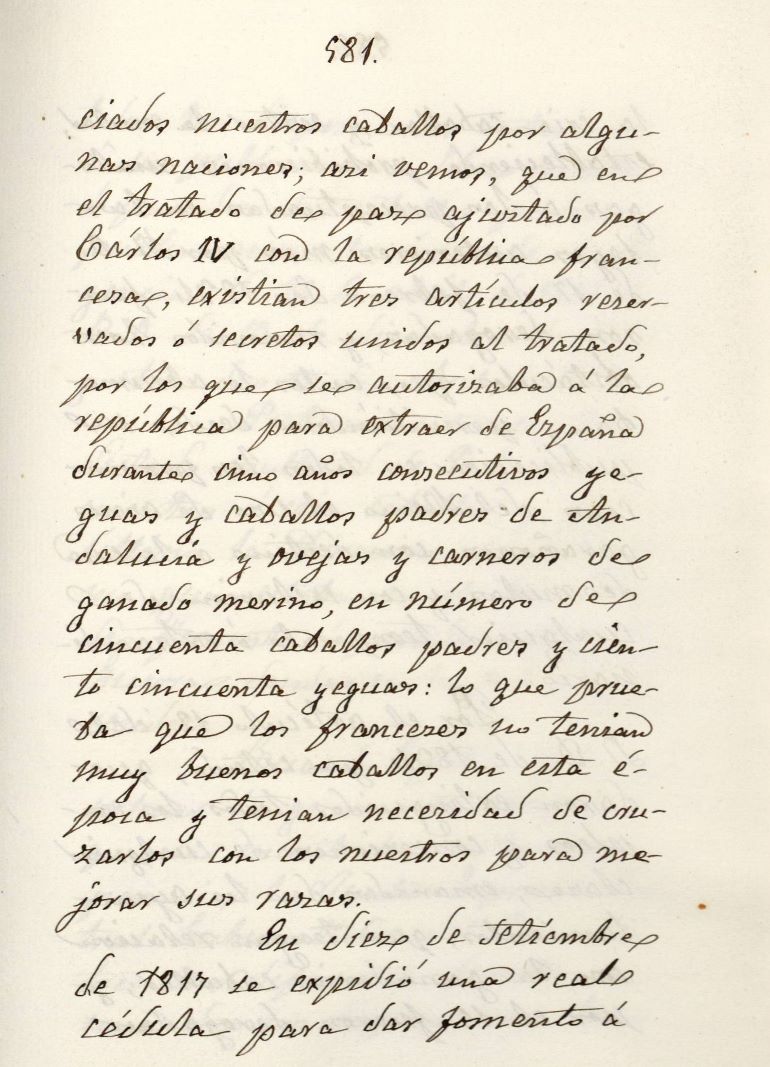 581.
ciados nuestros caballos por algu-
nas naciones; asi vemos, que en
el tratado de paz ajustado por
Cárlos IV con la república fran-
cesa, existian tres artículos reser-
vados ó secretos unidos al tratado,
por los que se autorizaba á la
república para extraer de España
durante cinco años consecutivos ye-
guas y caballos padres de An-
dalucia y ovejas y carneros de
ganado merino, en número de
cincuenta caballos padres y cien-
to cincuenta yeguas: lo que prue-
ba que los franceses no tenian
muy buenos caballos en esta é-
poca y tenian necesidad de cru-
zarlos con los nuestros para me-
jorar sus razas.
En diez de Setiembre
de 1817 se expidió una real
cédula para dar fomento á